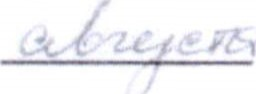 августа